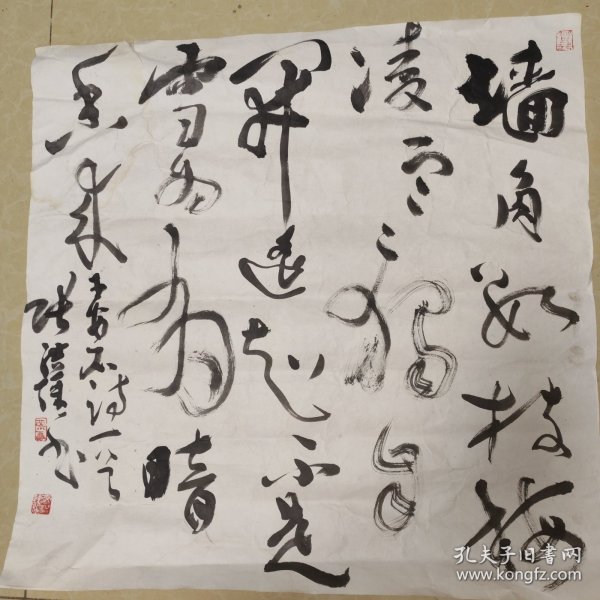 墙角数枝梅
凌寒独自
开遥知不是
雪为有暗
香来
王安石诗一首
张
书
孔夫子旧书网
www.kongfz.com